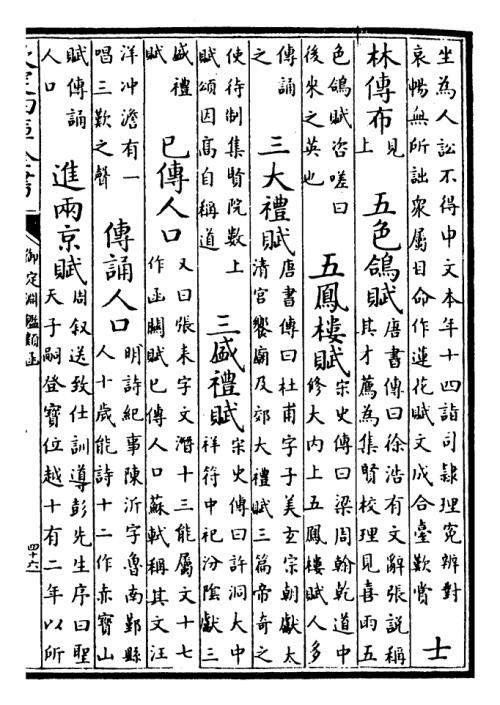 坐為人訟不得申文本年十四詣司隷理寃辨對
哀暢無所詘衆屬目命作蓮花賦文成合臺歎賞
士
林傳布
見
上
五色鴿賦
唐書傳曰徐浩有文辭張說稱
其才薦為集賢校理見喜雨五
色鴿賦咨嗟曰
後來之英也
五鳳樓賦
宋史傳曰梁周翰乾道中
修大内上五鳳樓賦人多
傳誦
之
三大禮賦
唐書傳曰杜甫字子美玄宗朝獻太
清宫饗廟及郊大禮賦三篇帝奇之
使待制集賢院數上
賦頌因髙自稱道
三盛禮賦
宋史傳曰許洞大中
祥符中祀汾隂獻三
盛禮
賦
已傳人口
又曰張耒字文潛十三能屬文十七
作函關賦已傳人口蘇軾稱其文汪
洋冲澹有一
唱三歎之聲
傳誦人口
明詩紀事陳沂字魯南鄞縣
人十歲能詩十二作赤寶山
賦傳誦
人口
進兩京賦
周叙送致仕訓導彭先生序曰聖
天子嗣登寶位越十有二年以所
御定淵鑑類函
四十六